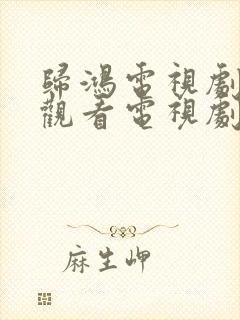 歸鴻電視劇
觀看電視劇
麻生岬